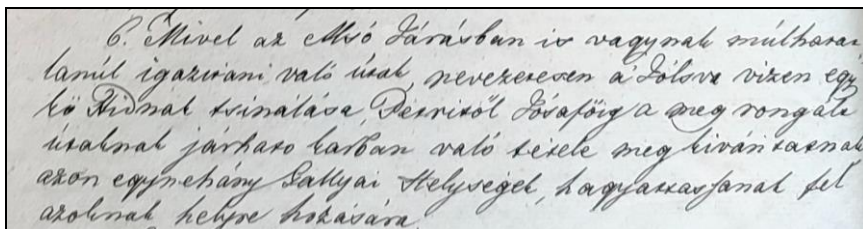 6. Mivel az Alsó Járásban is vagynak múlhatat
lanúl igazitani való útak, nevezetesen á Jólsva vizen egy
kő Hidnak tsinálása, Petritől Jósafőig a meg rongált
útaknak járható karban való tétele megkivántatnak
azon egynehány Gallyai Helységek, hagyattassanak fel
azoknak helyre hozására